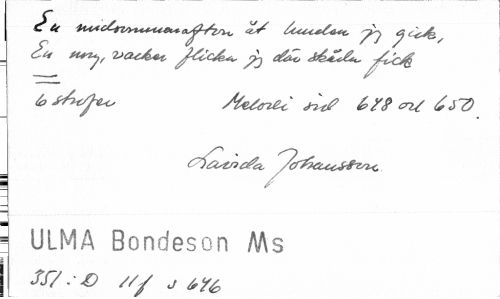 En midsommarafton åt lunden jg gick,
En ung, vacker flicka jg där skåda fick
6 strofer Melodi sid 648 och 650.
Lavida Johansson
ULMA Bondeson Ms
351:D 11f s 646